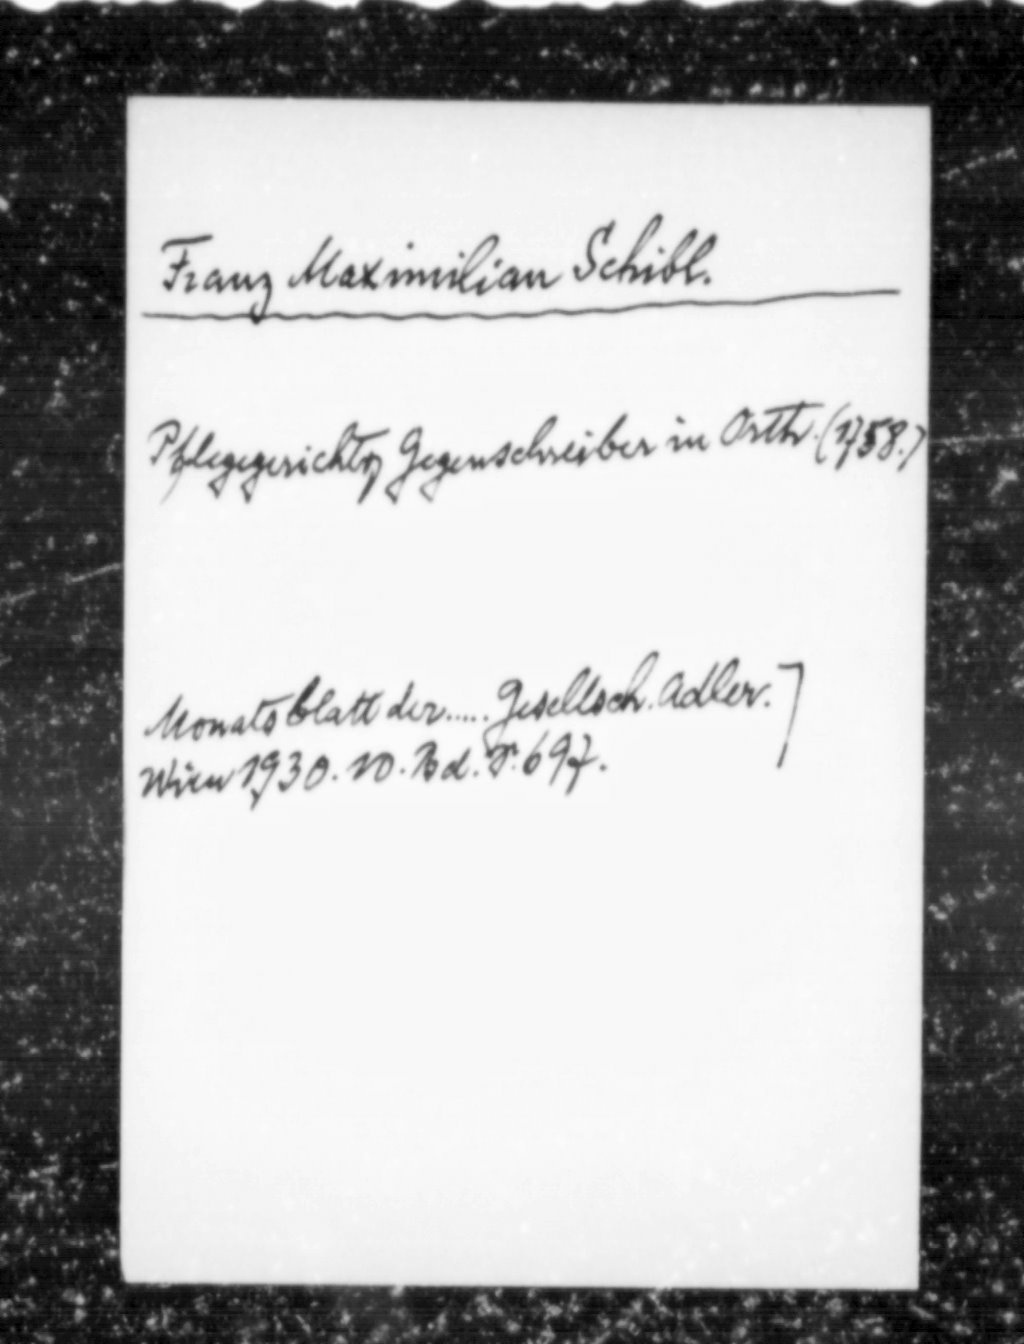 Franz Maximilian Schibl.
Pflegegerichts Gegenschreiber in Orth. (1758.)
Monatsblatt der..... Gesellsch. Adler.
Wien 1930. 10. Bd. S. 697.